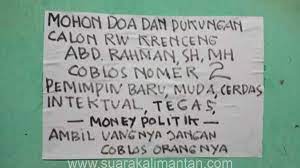 MOHON DOA DAN DUKUNGAN
CALON RW KRENCENG
ABD. RAHMAN, SH, MH
COBLOS NOMER 2
PEMIMPIN BARU, MUDA, CERDAS
INTEKTUAL, TEGAS,
— MONEY POLITIK —
AMBIL UANGNYA JANGAN
COBLOS ORANGNYA
www.suarakalimantan.com